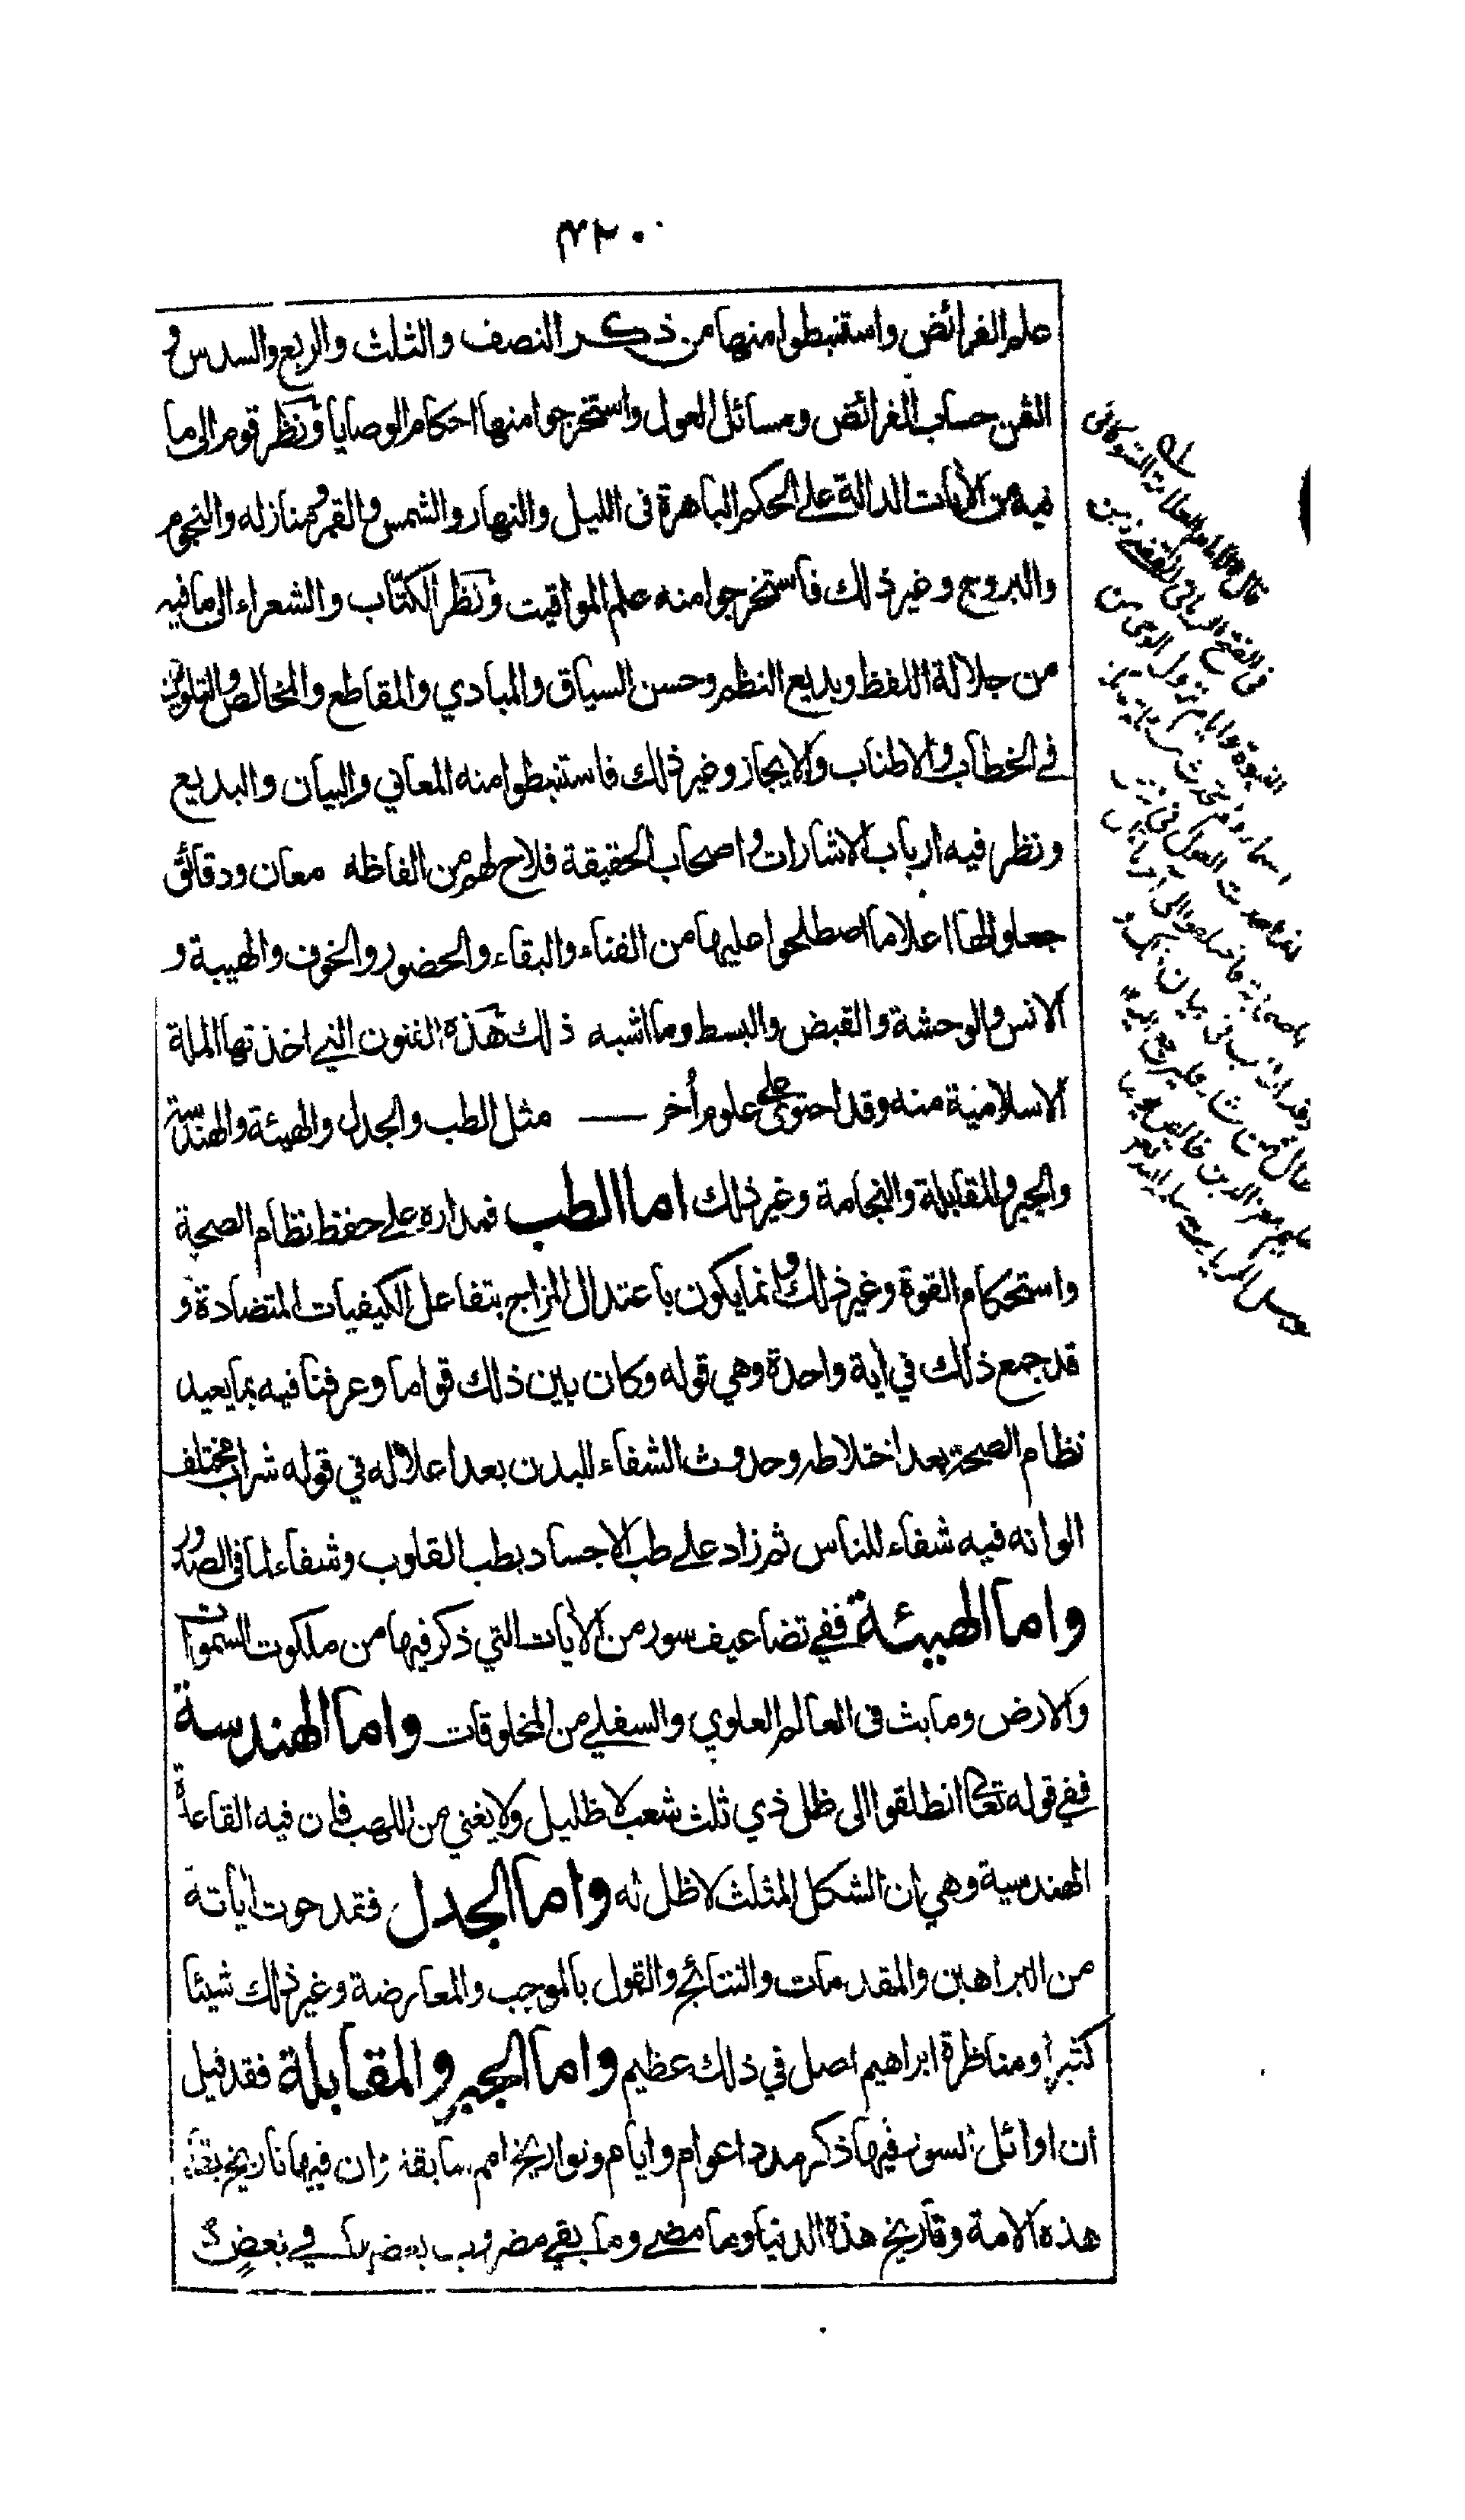 ٤٢٠
علم الفرائض واستنبطوا منها من ذكر النصف والثلث والربع والسدس و
الثمن حساب الفرائض ومسائل العول واستخرجوا منها احكام الوصايا ونظر قوم الى ما
فيه من الآيات الدالة على الحكم الباهرة فى الليل والنهار والشمس والقمر ومنازله والنجوم
والبروج وغير ذلك فاستخرجوا منه علم المواقيت ونظر الكتّاب والشعراء الى ما فيه
من جلالة اللفظ وبديع النظم وحسن السياق والمبادي والمقاطع والمخالص والتلوين
في الخطاب والاطناب والايجاز وغير ذلك فاستنبطوا منه المعاني والبيان والبديع
ونظر فيه ارباب الاشارات واصحاب الحقيقة فلاح لهم من الفاظه معان ودقائق
جعلوا لها اعلاما اصطلحوا عليها من الفناء والبقاء والحضور والخوف والهيبة و
الانس والوحشة والقبض والبسط وما اشبه ذلك هذه الفنون التي اخذتها الملة
الاسلامية منه وقد احتوى على علوم أخر — مثل الطب والجدل والهيئة والهندسة
والجبر والمقابلة والنجامة وغير ذلك اما الطب فمداره على حفظ نظام الصحة
واستحكام القوة وغير ذلك وانما يكون باعتدال المزاج بتفاعل الكيفيات المتضادة و
قد جمع ذلك في اية واحدة وهي قوله وكان بين ذلك قواما وعرفنا فيه بما يعيد
نظام الصحة بعد اختلاطه وحدوث الشفاء للبدن بعد اعلاله في قوله شراب مختلف
الوانه فيه شفاء للناس ثم زاد على طب الاجساد بطب القلوب وشفاء لما فى الصدور
واما الهيئة ففي تضاعيف سور من الآيات التي ذكر فيها من ملكوت السموات
والارض وما بث فى العالم العلوي والسفلي من المخلوقات واما الهندسة
ففي قوله تعالى انطلقوا الى ظل ذي ثلث شعب لا ظليل ولا يغني من اللهب فان فيه القاعدة
الهندسية وهي ان الشكل المثلث لا ظل له واما الجدل فقد حوت اياته
من البراهين والمقدمات والنتائج والقول بالموجب والمعارضة وغير ذلك شيئا
كثيرا ومناظرة ابراهيم اصل في ذلك عظيم واما الجبر والمقابلة فقد قيل
ان اوائل السور فيها ذكر مدد اعوام وايام وتواريخ امم سابقة وان فيها تاريخ بقاء
هذه الامة وتاريخ هذه الدنيا وما مضى وما بقي مضروب بعضها في بعض و